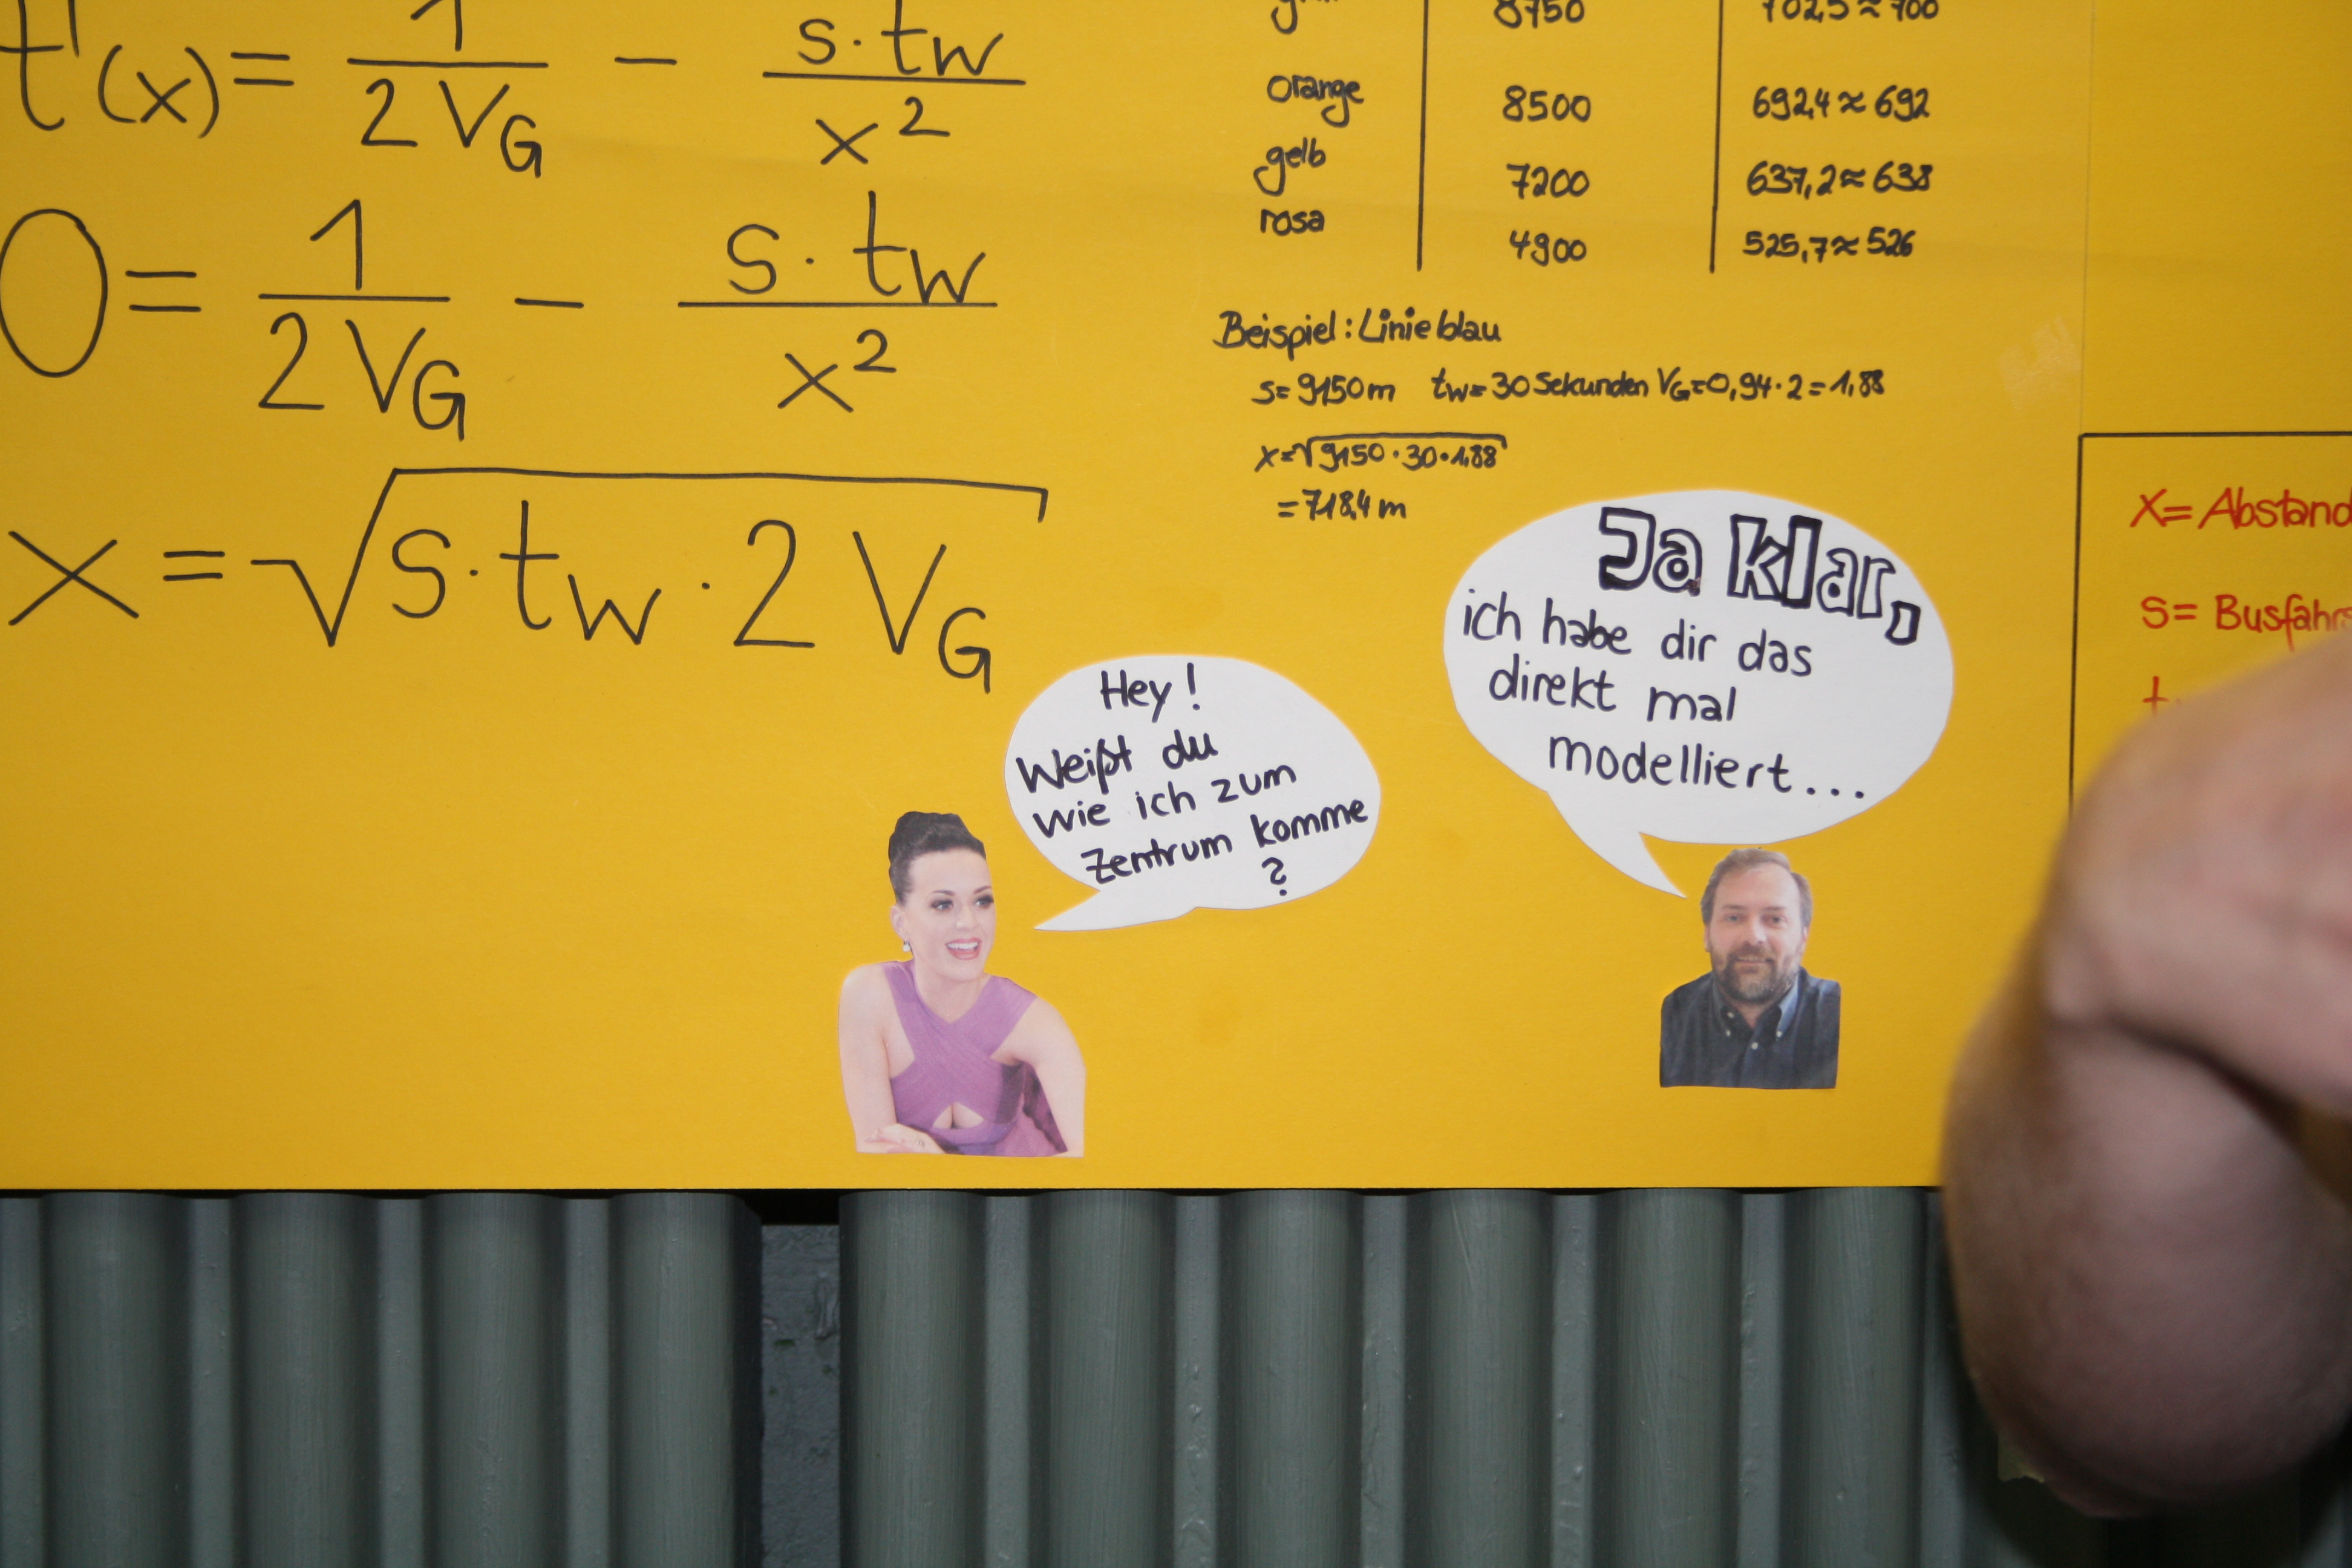 t'(x) = 1/(2 V_G) − (s · t_w)/x²
0 = 1/(2 V_G) − (s · t_w)/x²
x = √(s · t_w · 2 V_G)
8750 | 702,5 ≈ 700
orange | 8500 | 692,4 ≈ 692
gelb | 7200 | 637,2 ≈ 638
rosa | 4900 | 525,7 ≈ 526
Beispiel: Linie blau
s = 9150 m t_w = 30 Sekunden V_G = 0,94 · 2 = 1,88
x = √(9150 · 30 · 1,88)
= 718,4 m
Hey!
Weißt du
wie ich zum
Zentrum komme
?
Ja klar,
ich habe dir das
direkt mal
modelliert...
x = Abstand
s =